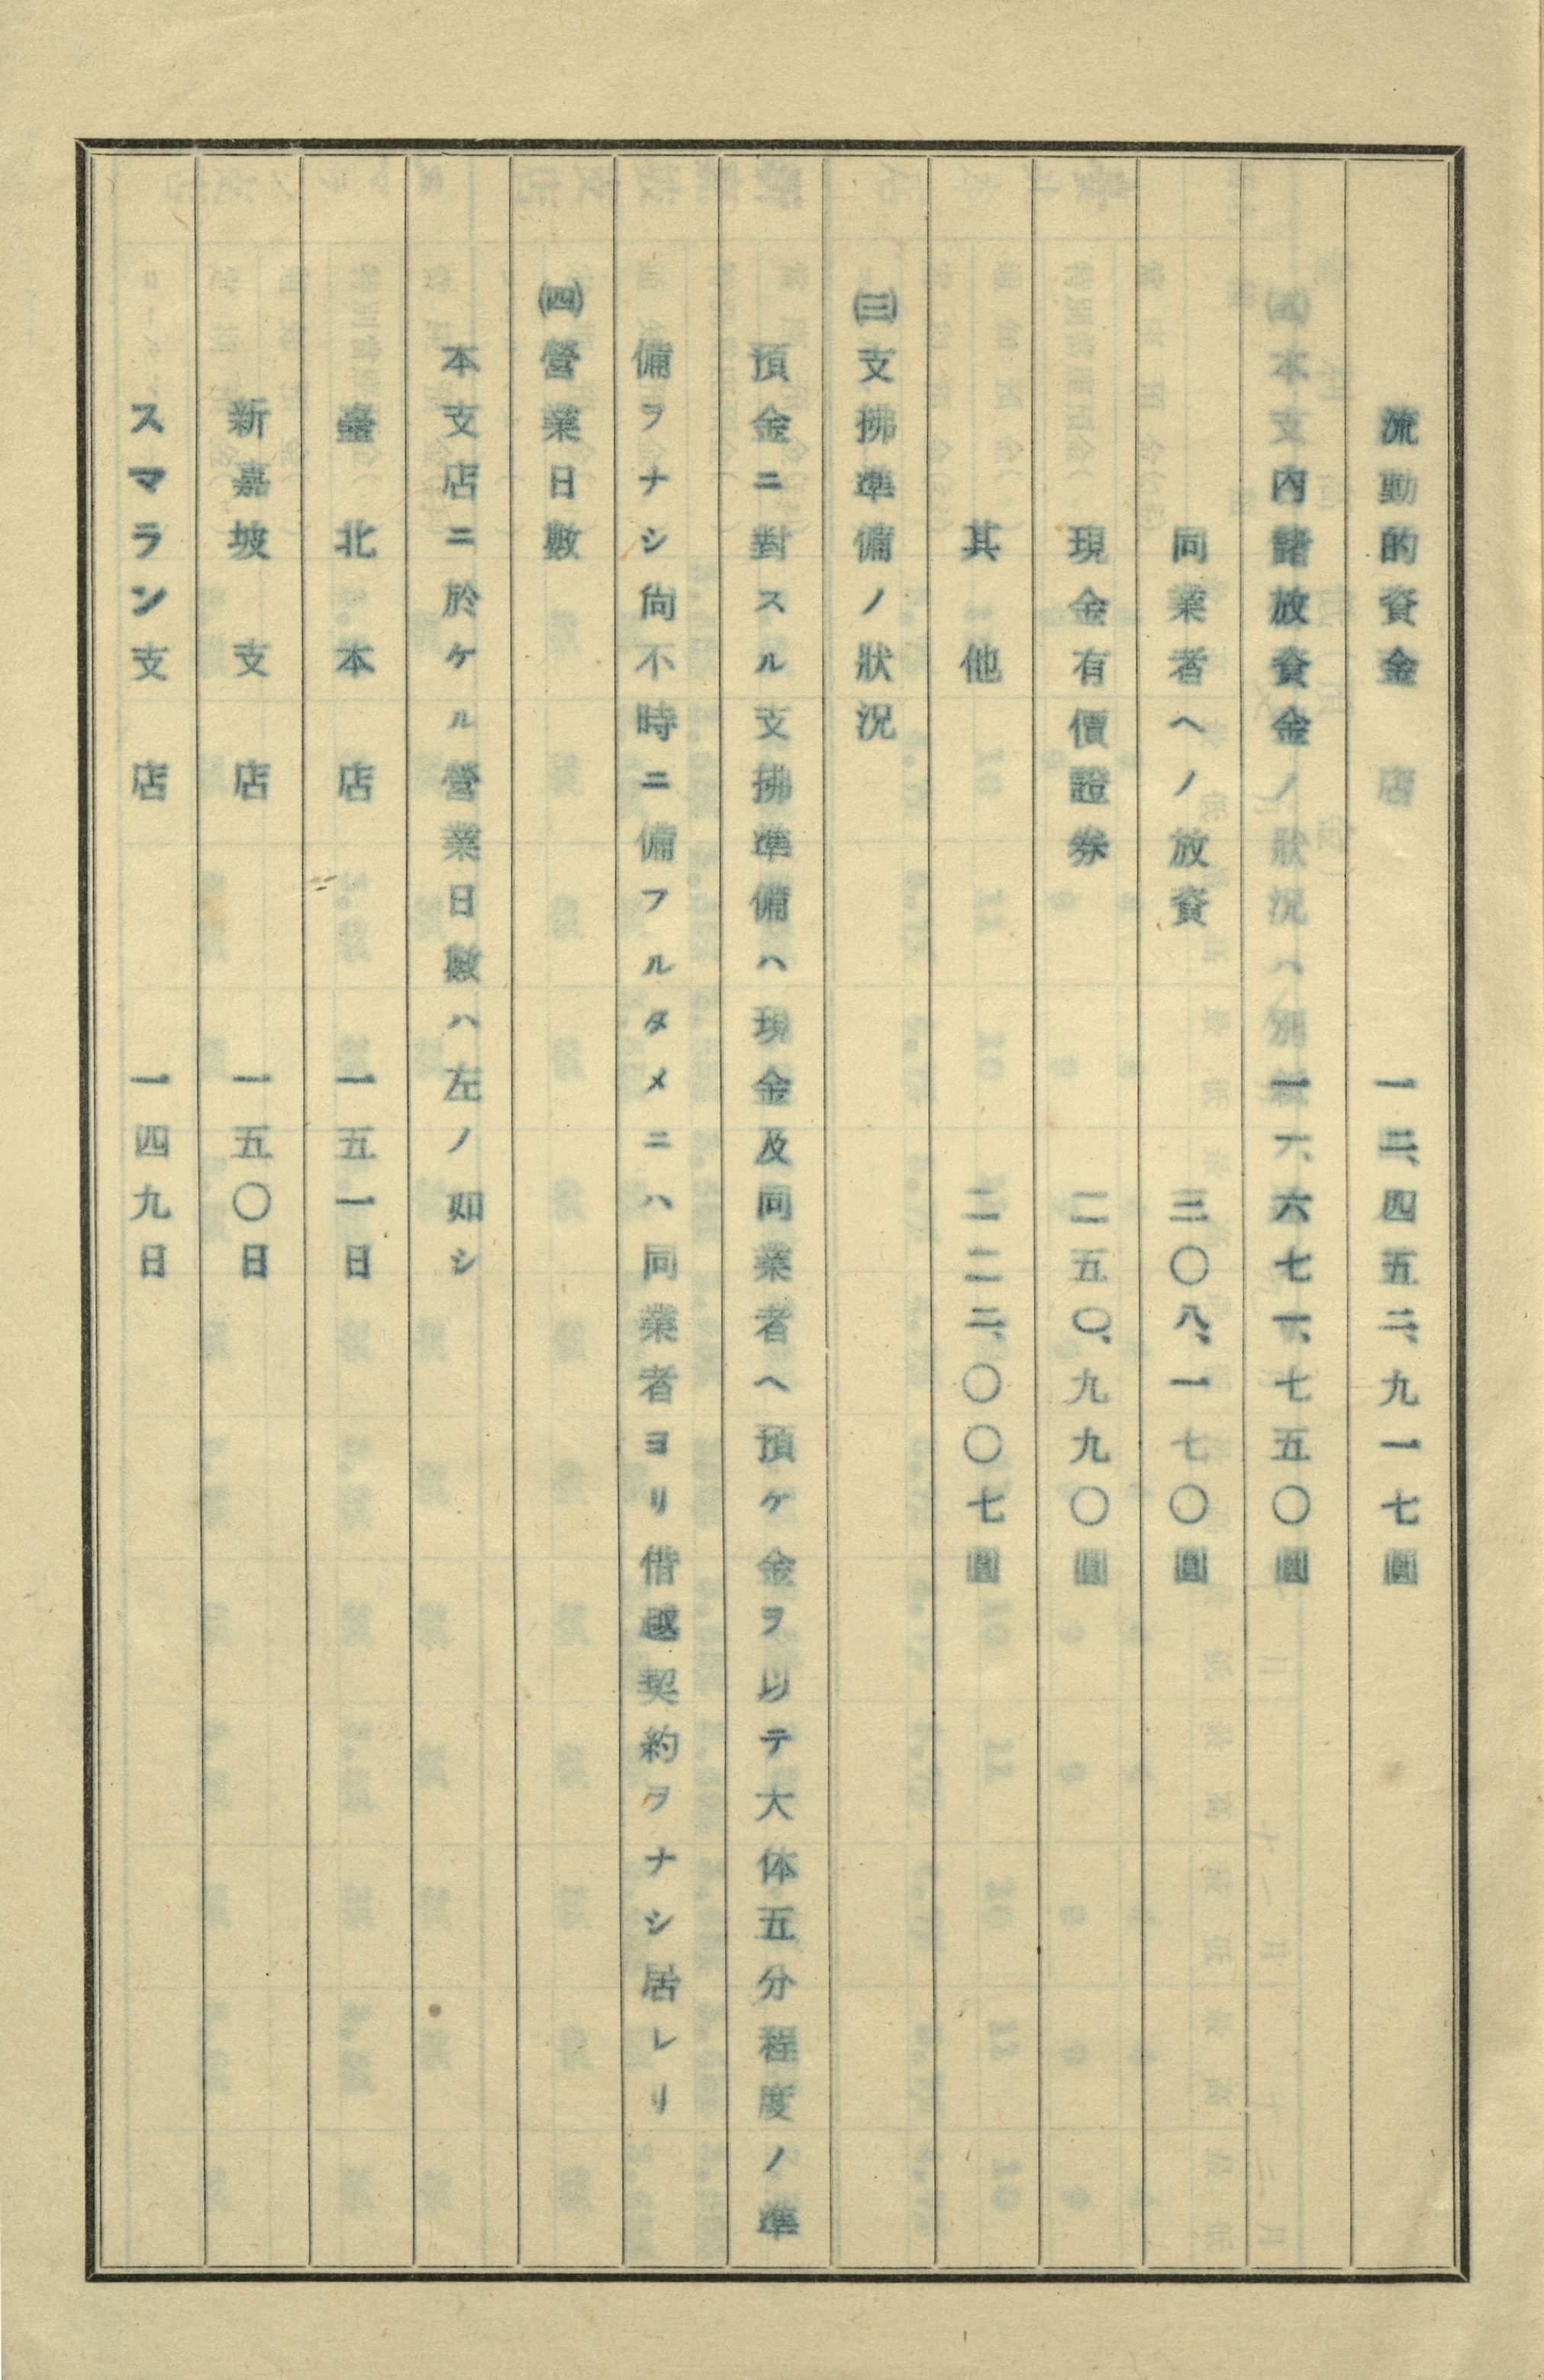 流動的資金　一二、四五二、九一七圓
內諸放資金　一一、六七一、七五〇圓
同業者ヘノ放資　三〇八、一七〇圓
現金有價證券　二五〇、九九〇圓
其他　二二二、〇〇七圓
㈢支拂準備ノ狀況
預金ニ對スル支拂準備ハ現金及同業者ヘ預ケ金ヲ以テ大体五分程度ノ準
備ヲナシ尙不時ニ備フルタメニハ同業者ヨリ借越契約ヲナシ居レリ
㈣營業日數
本支店ニ於ケル營業日數ハ左ノ如シ
臺北本店　一五一日
新嘉坡支店　一五〇日
スマラン支店　一四九日